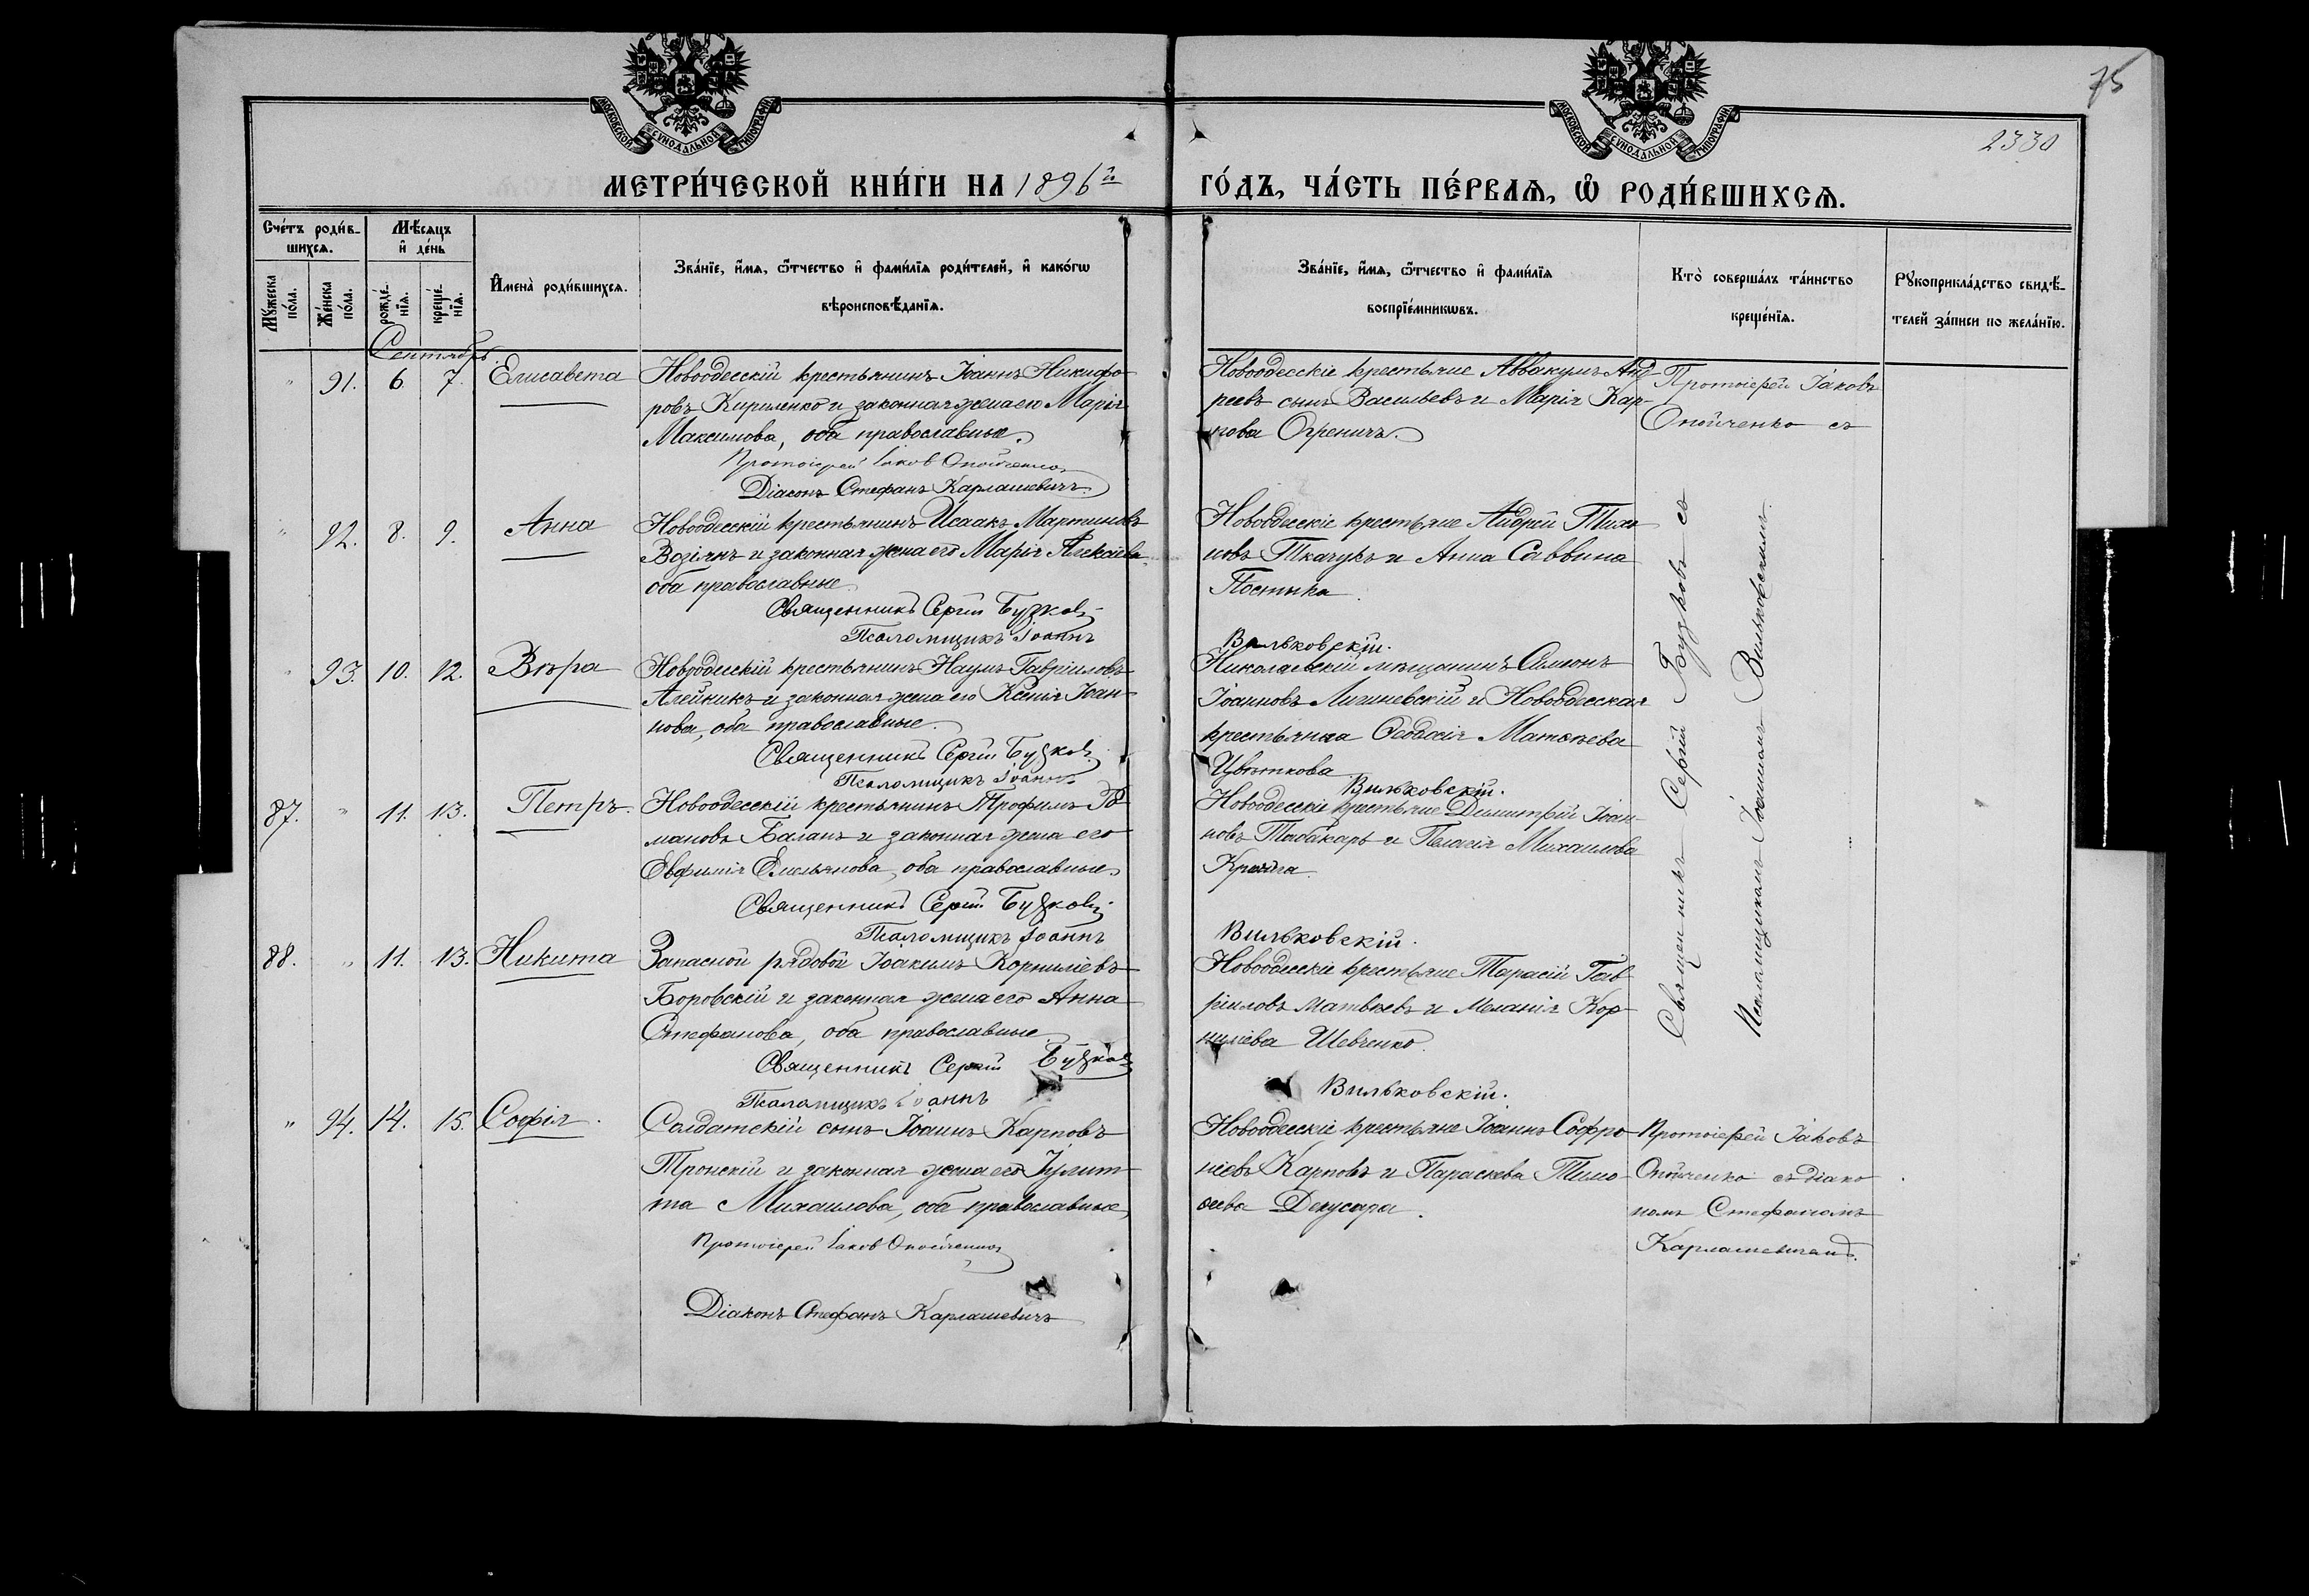 75
2330
МОСКОВСКОЙ СУНОДАЛЬНОЙ ТИПОГРАФІИ
МОСКОВСКОЙ СУНОДАЛЬНОЙ ТИПОГРАФІИ
МЕТРИ́ЧЕСКОЙ КНИ́ГИ НА 1896й ГО́ДЪ, ЧА́СТЬ ПЕ́РВАЯ, Ѿ РОДИ́ВШИХСЯ.
Сче́тъ роди́в-
шихся.
Мѣ́сяцъ
и҆ де́нь
Мꙋ́жеска
по́ла.
Же́нска
по́ла.
рожде́-
нїя.
креще́-
нїя.
И҆мена̀ роди́вшихся.
Зва́нїе, и҆́мя, ѻ҆́тчество и҆ фами́лїя роди́телей, и҆ како́гѡ
вѣроисповѣ́данїя.
Зва́нїе, и҆́мя, ѻ҆́тчество и҆ фами́лїя
воспрїе́мникѡвъ.
Кто̀ соверша́лъ та́инство
креще́нїя.
Рꙋкоприкла́дство свидѣ́-
телей за́писи по жела́нїю.
Сентябрь.
" 91. 6. 7. Елисавета
Новоодесскій крестьянинъ Іоаннъ Никифо-
ровъ Кириленко и законная жена его Марія
Максимова, оба православные.
Протоіерей Іаковъ Опойченко
Діаконъ Стефанъ Карлашевичъ
Новоодесскіе крестьяне Аввакумъ Анд-
реевъ сынъ Васильевъ и Марія Кар-
пова Огреничъ.
Протоіерей Іаковъ
Опойченко съ
" 92. 8. 9. Анна
Новоодесскій крестьянинъ Исаакъ Мартиновъ
Возіянъ и законная жена его Марія Алексіева
оба православные
Священникъ Сергій Бузковъ
Псаломщикъ Іоаннъ Вильковскій.
Новоодесскіе крестьяне Андрей Тихо-
новъ Ткачукъ и Анна Саввина
Постыка.
Священникъ Сергій Бузковъ съ
Псаломщикомъ Іоанномъ Вильковскимъ.
" 93. 10. 12. Вѣра
Новоодесскій крестьянинъ Наумъ Гавріиловъ
Алейникъ и законная жена его Ксенія Іоан-
нова, оба православные.
Священникъ Сергій Бузковъ
Псаломщикъ Іоаннъ Вильковскій.
Николаевскій мѣщанинъ Симеонъ
Іоанновъ Лигиневскій и Новоодесская
крестьянка Ѳеодосія Матѳеева
Цвѣткова
87. " 11. 13. Петръ.
Новоодесскій крестьянинъ Трофимъ Ро-
мановъ Баланъ и законная жена его
Евфимія Емельянова, оба православные.
Священникъ Сергій Бузковъ
Псаломщикъ Іоаннъ Вильковскій.
Новоодесскіе крестьяне Димитрій Іоан-
новъ Табакарь и Пелагія Михаилова
88. " 11. 13. Никита
Запасной рядовой Іоакимъ Корниліевъ
Боровскій и законная жена его Анна
Стефанова, оба православные.
Священникъ Сергій Бузковъ
Псаломщикъ Іоаннъ Вильковскій.
Новоодесскіе крестьяне Тарасій Гав-
ріиловъ Матвѣевъ и Меланія Кор-
нилiева Шевченко.
" 94. 14. 15. Софія.
Солдатскій сынъ Іоаннъ Карповъ
Тронскій и законная жена его Іулит-
та Михаилова, оба православные,
Протоіерей Іаковъ Опойченко
Діаконъ Стефанъ Карлашевичъ
Новоодесскіе крестьяне Іоаннъ Софро-
ніевъ Карповъ и Параскева Тимо-
ѳеева Декусара.
Протоіерей Іаковъ
Опойченко съ діако-
номъ Стефаномъ
Карлашевичемъ.